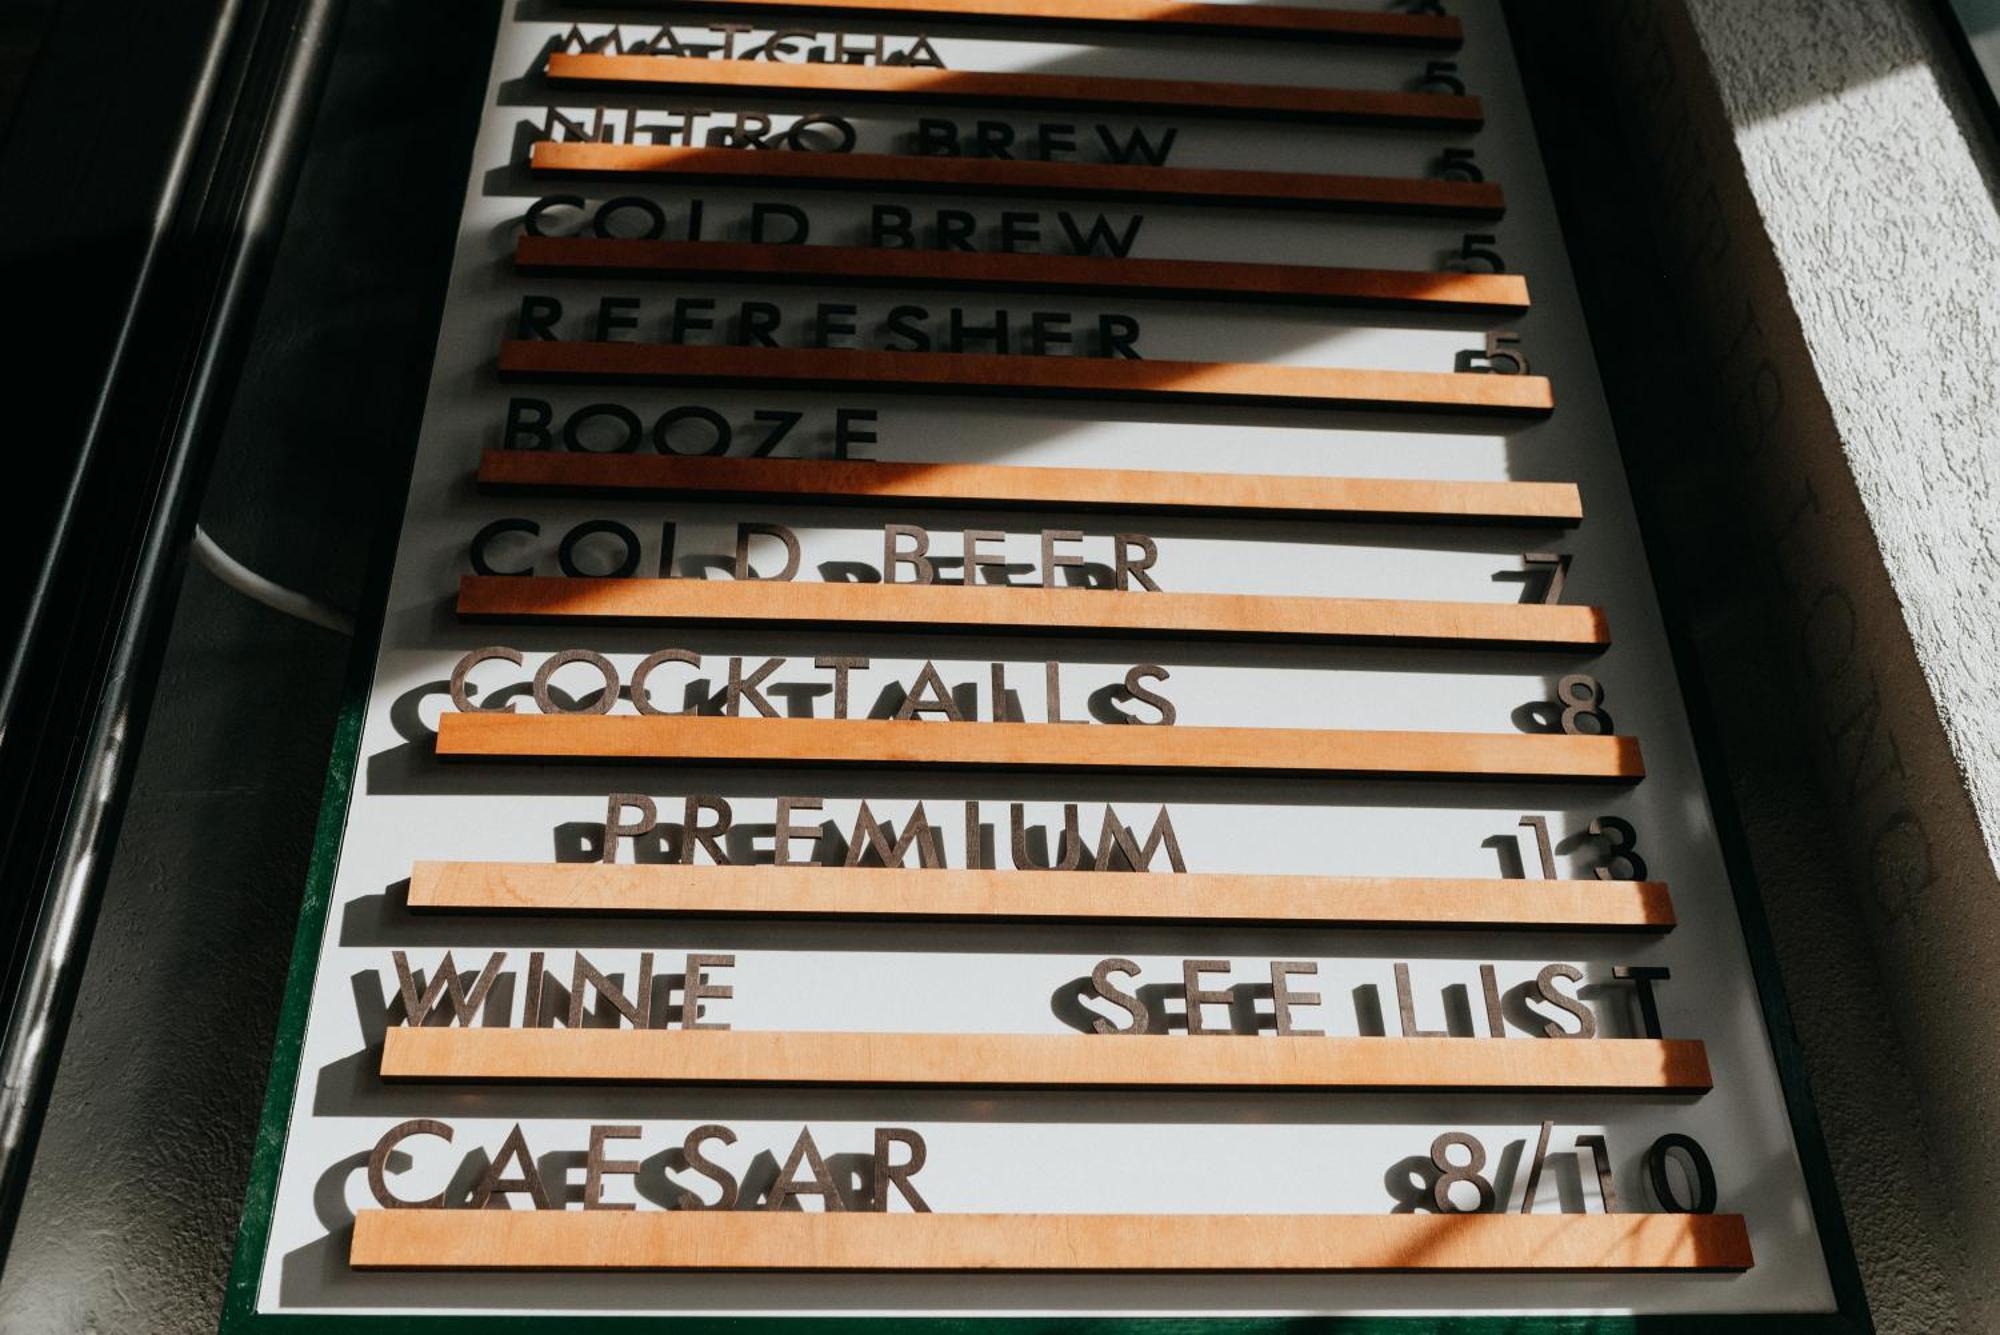 MATCHA 5
NITRO BREW 5
COLD BREW 5
REFRESHER 5
BOOZE
COLD BEER 7
COCKTAILS 8
PREMIUM 13
WINE SEE LIST
CAESAR 8/10